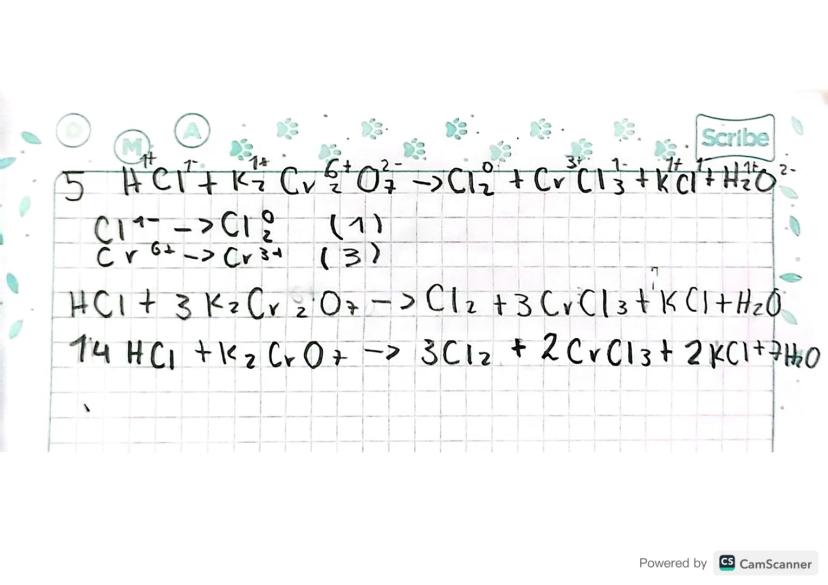 D M A
Scribe
5 H¹⁺Cl¹⁻ + K₂¹⁺Cr₂⁶⁺O₇²⁻ -> Cl₂⁰ + Cr³⁺Cl₃¹⁻ + K¹⁺Cl¹⁻ + H₂¹⁺O²⁻
Cl¹⁻ -> Cl₂⁰ (1)
Cr⁶⁺ -> Cr³⁺ (3)
HCl + 3 K₂Cr₂O₇ -> Cl₂ + 3 CrCl₃ + KCl + H₂O
14 HCl + K₂CrO₇ -> 3Cl₂ + 2CrCl₃ + 2KCl + 7H₂O
Powered by CS CamScanner